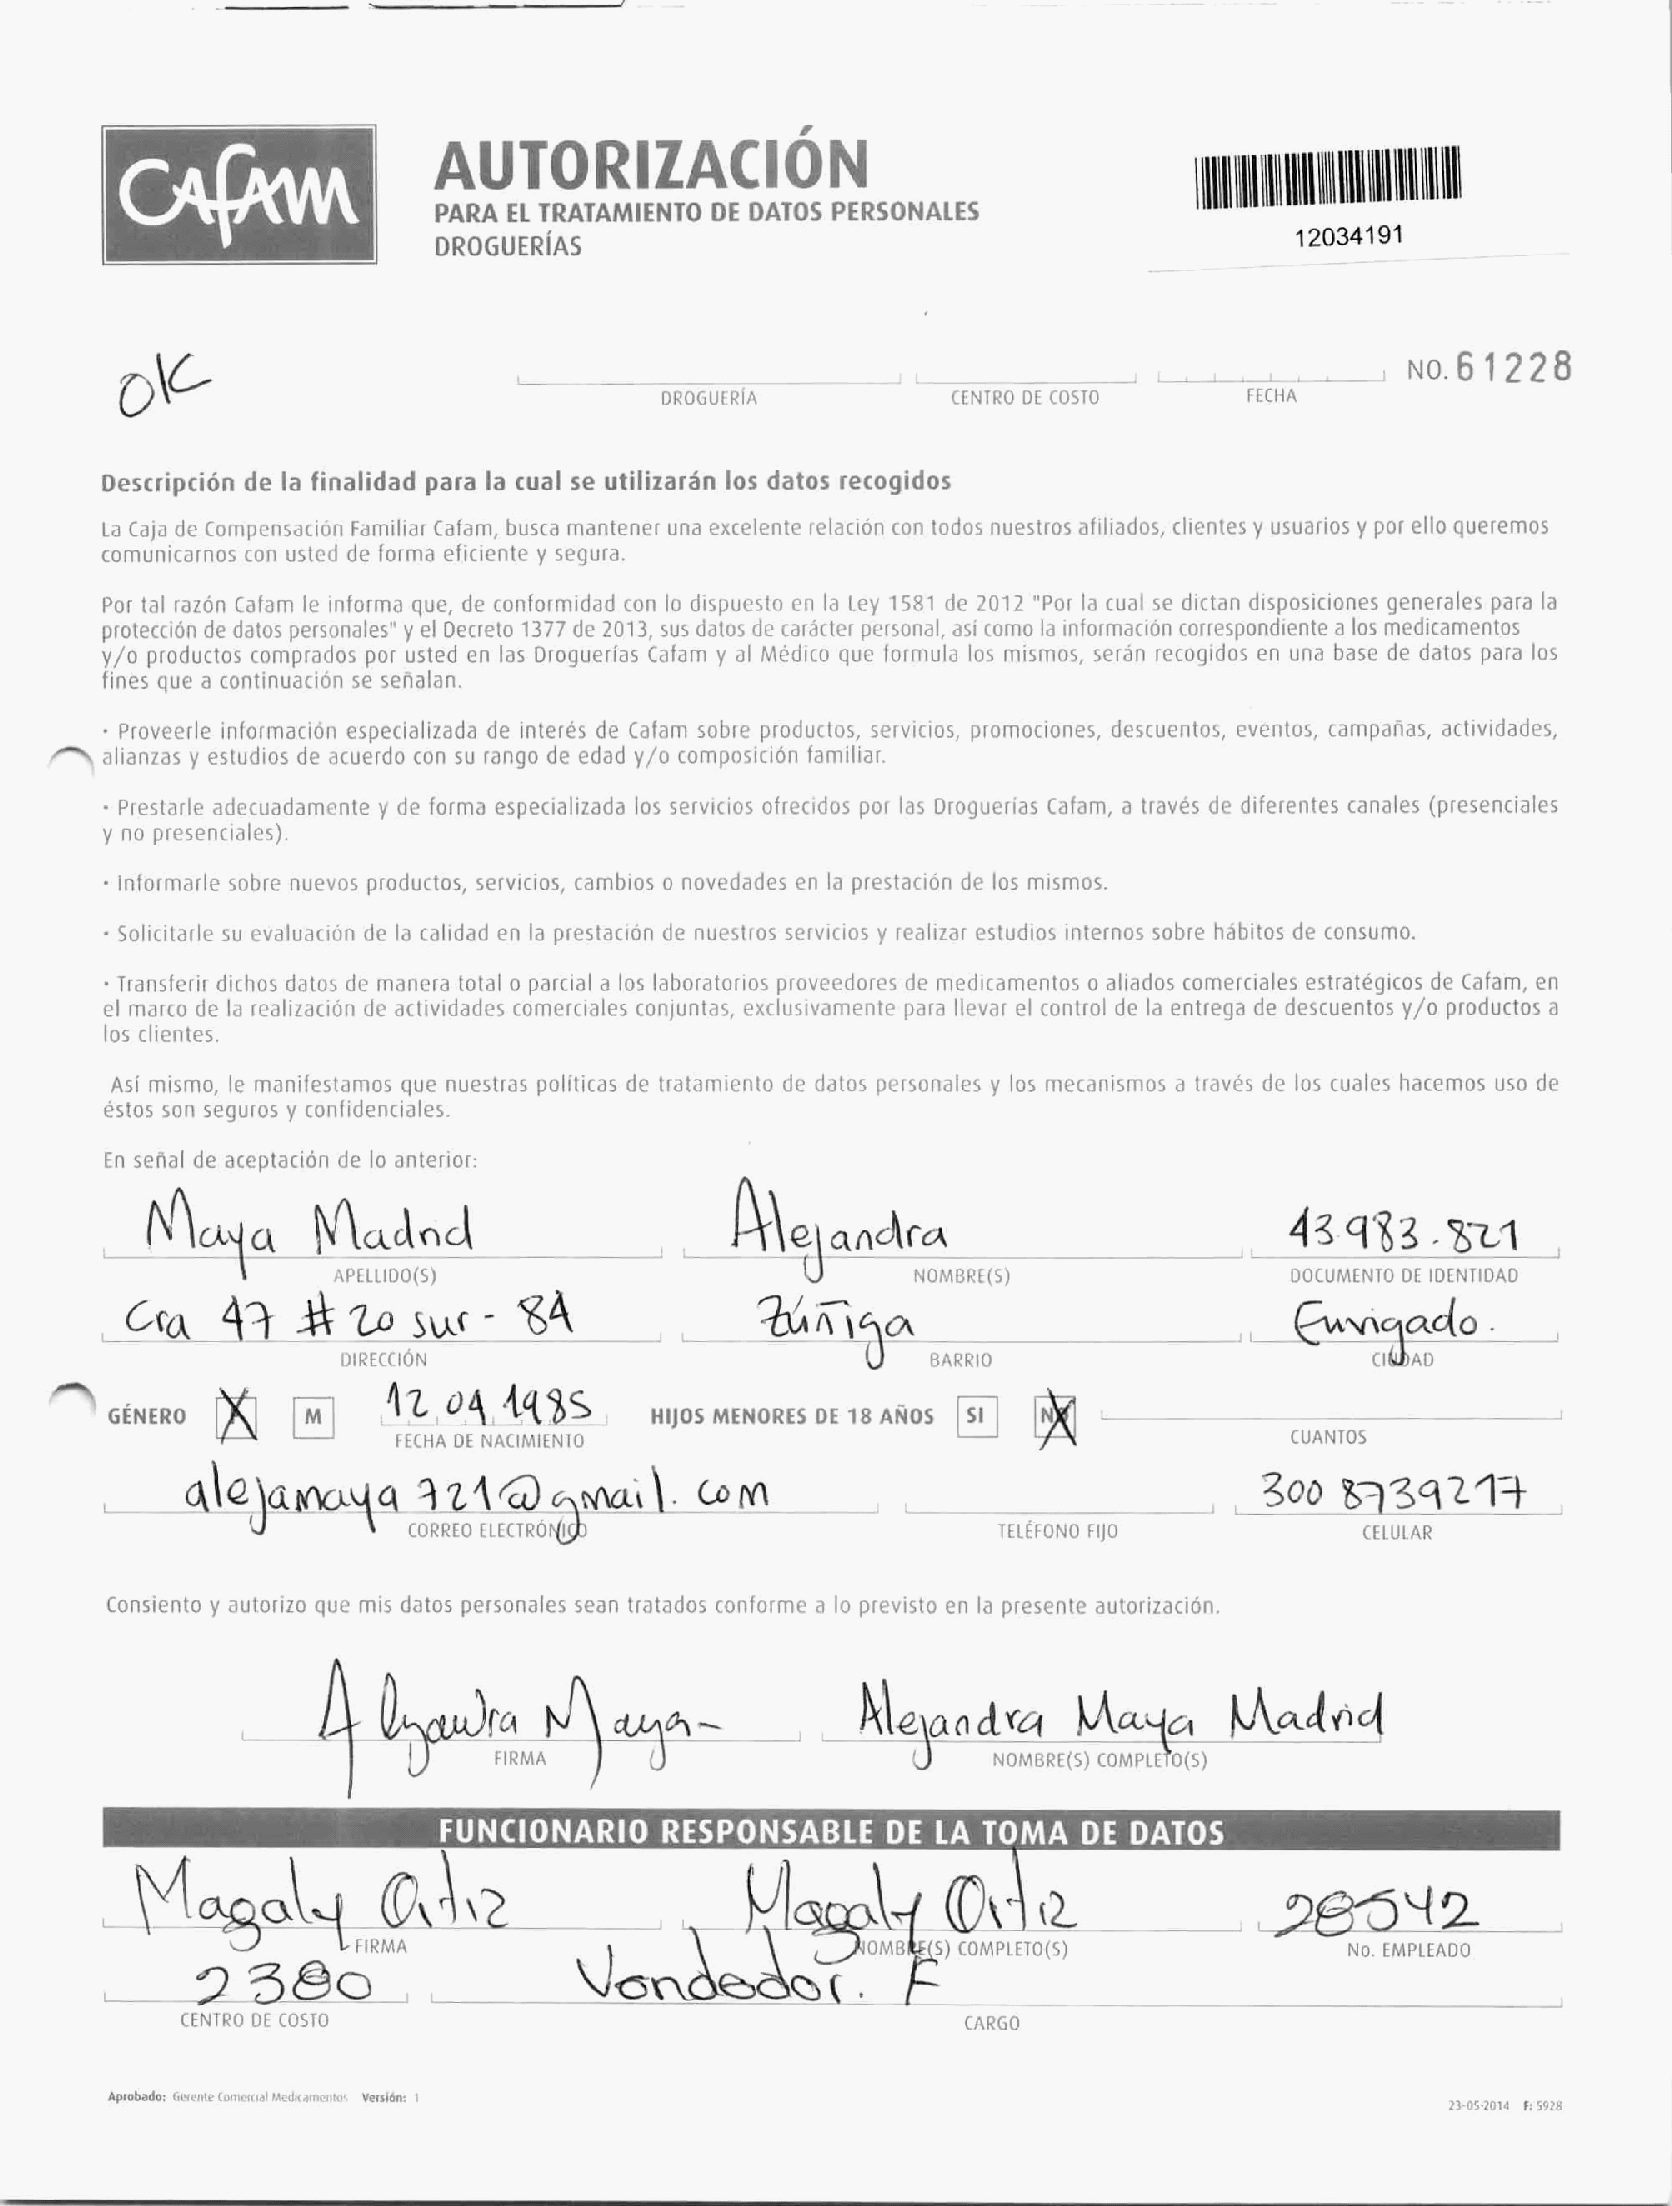 Cafam
AUTORIZACIÓN
PARA EL TRATAMIENTO DE DATOS PERSONALES
DROGUERÍAS
12034191
OK
NO. 61228
DROGUERÍA CENTRO DE COSTO FECHA
Descripción de la finalidad para la cual se utilizarán los datos recogidos
La Caja de Compensación Familiar Cafam, busca mantener una excelente relación con todos nuestros afiliados, clientes y usuarios y por ello queremos
comunicarnos con usted de forma eficiente y segura.
Por tal razón Cafam le informa que, de conformidad con lo dispuesto en la Ley 1581 de 2012 "Por la cual se dictan disposiciones generales para la
protección de datos personales" y el Decreto 1377 de 2013, sus datos de carácter personal, así como la información correspondiente a los medicamentos
y/o productos comprados por usted en las Droguerías Cafam y al Médico que formula los mismos, serán recogidos en una base de datos para los
fines que a continuación se señalan.
· Proveerle información especializada de interés de Cafam sobre productos, servicios, promociones, descuentos, eventos, campañas, actividades,
alianzas y estudios de acuerdo con su rango de edad y/o composición familiar.
· Prestarle adecuadamente y de forma especializada los servicios ofrecidos por las Droguerías Cafam, a través de diferentes canales (presenciales
y no presenciales).
· Informarle sobre nuevos productos, servicios, cambios o novedades en la prestación de los mismos.
· Solicitarle su evaluación de la calidad en la prestación de nuestros servicios y realizar estudios internos sobre hábitos de consumo.
· Transferir dichos datos de manera total o parcial a los laboratorios proveedores de medicamentos o aliados comerciales estratégicos de Cafam, en
el marco de la realización de actividades comerciales conjuntas, exclusivamente para llevar el control de la entrega de descuentos y/o productos a
los clientes.
Así mismo, le manifestamos que nuestras políticas de tratamiento de datos personales y los mecanismos a través de los cuales hacemos uso de
éstos son seguros y confidenciales.
En señal de aceptación de lo anterior:
Maya Madrid Alejandra 43.983.821
APELLIDO(S) NOMBRE(S) DOCUMENTO DE IDENTIDAD
Cra 47 # 20 sur - 84 Zúñiga Envigado.
DIRECCIÓN BARRIO CIUDAD
GÉNERO X M 12 09 1985 HIJOS MENORES DE 18 AÑOS SI NO X
FECHA DE NACIMIENTO CUANTOS
alejamaya721@gmail.com 300 8739217
CORREO ELECTRÓNICO TELÉFONO FIJO CELULAR
Consiento y autorizo que mis datos personales sean tratados conforme a lo previsto en la presente autorización.
Alejandra Maya Alejandra Maya Madrid
FIRMA NOMBRE(S) COMPLETO(S)
FUNCIONARIO RESPONSABLE DE LA TOMA DE DATOS
Magaly Ortiz Magaly Ortiz 28542
FIRMA NOMBRE(S) COMPLETO(S) No. EMPLEADO
2380 Vendedor. F
CENTRO DE COSTO CARGO
Aprobado: Gerente Comercial Medicamentos Versión: 1
23-05-2014 F: 5928